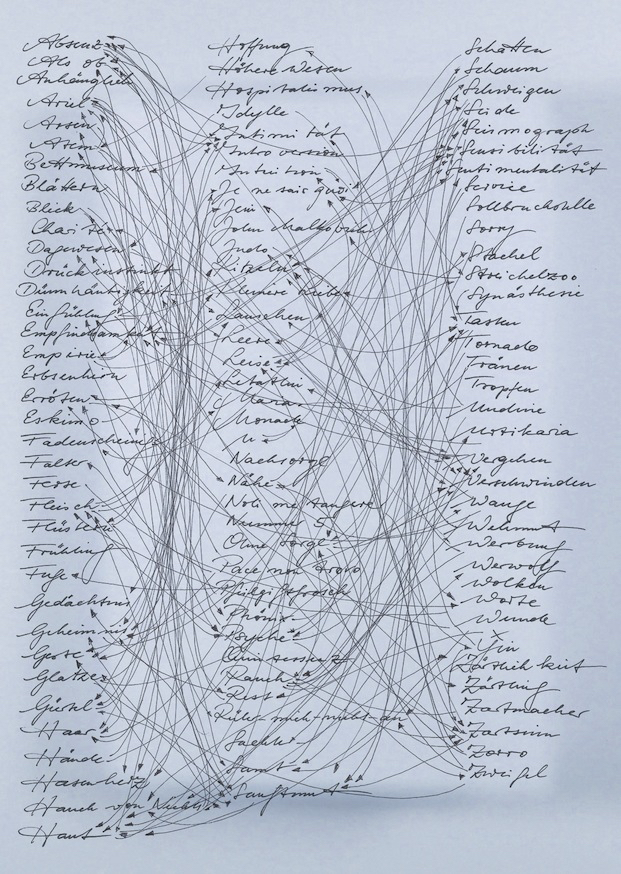 Absenz
Als ob
Anhänglich
Ariel
Arsen
Atem
Bettmuseum
Blättern
Blick
Charisma
Dagewesen
Druckinstinkt
Dünnhäutigkeit
Einfühlung
Empfindsamkeit
Empirie
Erbsenhirn
Erröten
Eskimo
Fadenscheinig
Falter
Ferse
Fleisch
Flüstern
Frühling
Fuge
Gedächtnis
Geheimnis
Geste
Glatze
Gürtel
Haar
Hände
Hasenherz
Hauch von Nichts
Haut
Hoffung
Höhere Wesen
Hospitalismus
Idylle
Intimität
Introversion
Intuition
Je ne sais quoi
Jein
John Malkovich
Judo
Kitzeln
Kleinere Reibe
Lauschen
Leere
Leise
Levitation
Manas
Monade
Nachsorge
Nähe
Noli me tangere
Nummer 5
Ohne Sorge
Pace non trovo
Pfützfrosch
Phönix
Psyche
Quintessenz
Rauch
Rest
Rühr-mich-nicht-an
Sachte
Samt
Sanftmut
Schatten
Schaum
Schweigen
Seide
Seismograph
Sensibilität
Sentimentalität
Service
Sollbruchstelle
Sorry
Stachel
Streichelzoo
Synästhesie
Tasten
Tornado
Tränen
Tropfen
Undine
Urtikaria
Vergehen
Verschwinden
Wange
Wehmut
Werbung
Werwolf
Wolken
Worte
Wunde
Yin
Zärtlichkeit
Zärtling
Zartmacher
Zartsinn
Zorro
Zweifel